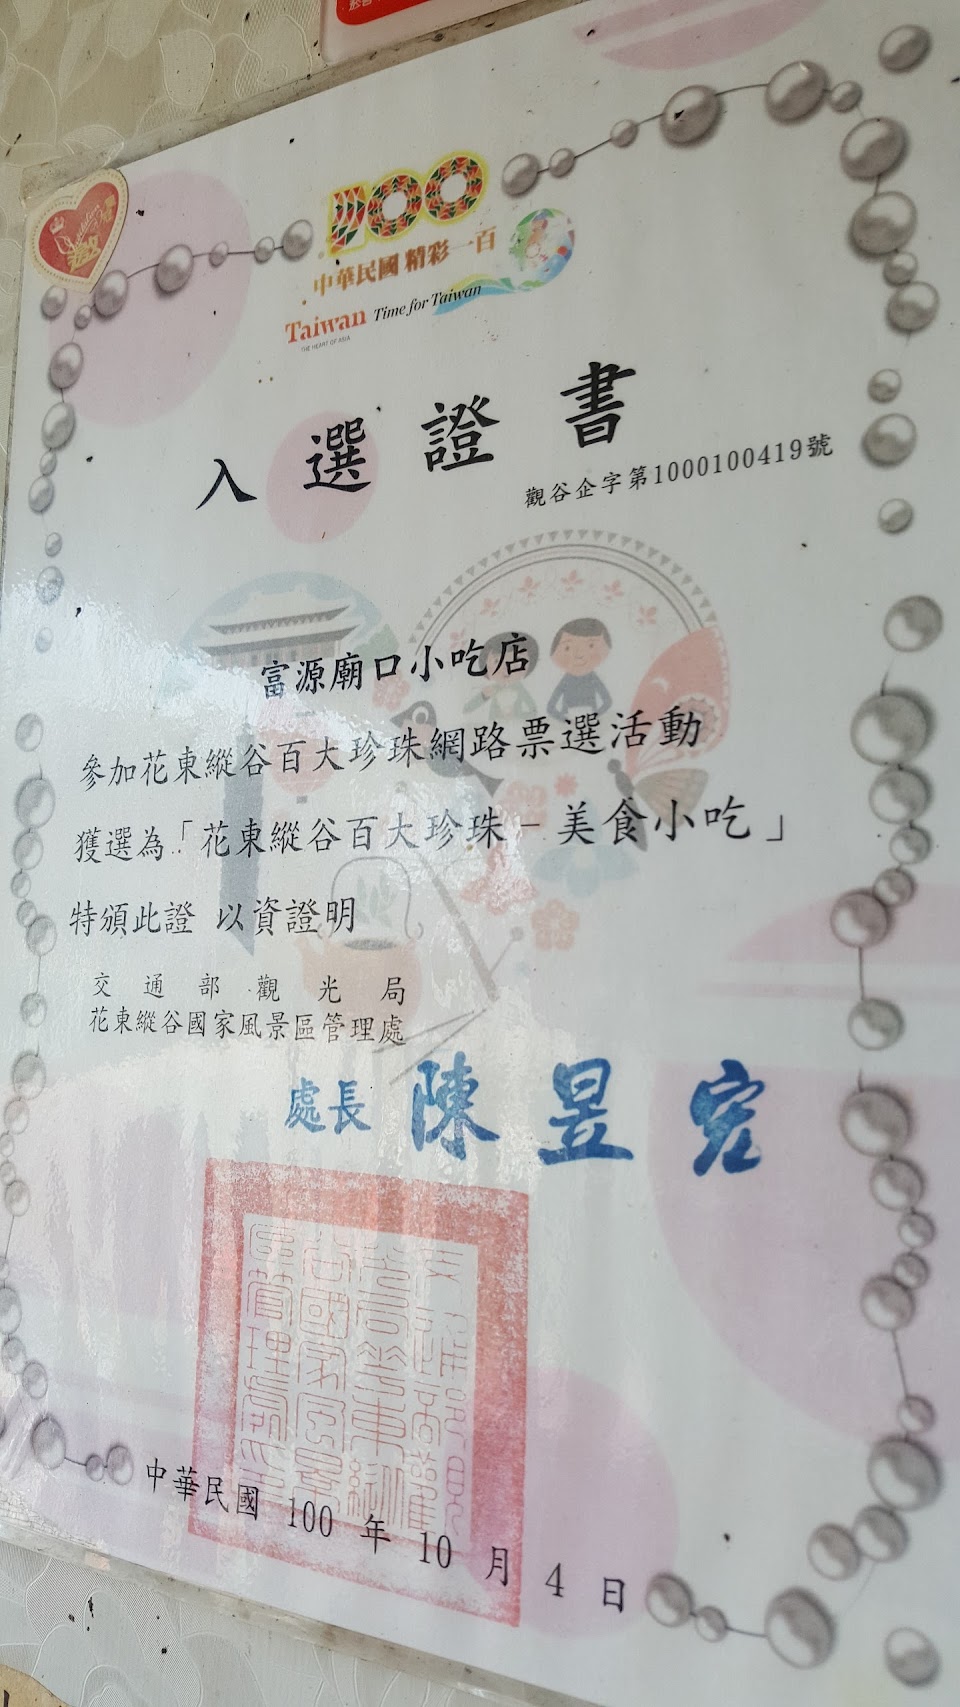 100
中華民國 精彩一百
Taiwan Time for Taiwan
THE HEART OF ASIA
入選證書
觀谷企字第1000100419號
富源廟口小吃店
參加花東縱谷百大珍珠網路票選活動
獲選為「花東縱谷百大珍珠-美食小吃」
特頒此證 以資證明
交通部觀光局
花東縱谷國家風景區管理處
處長 陳昱宏
中華民國 100 年 10 月 4 日